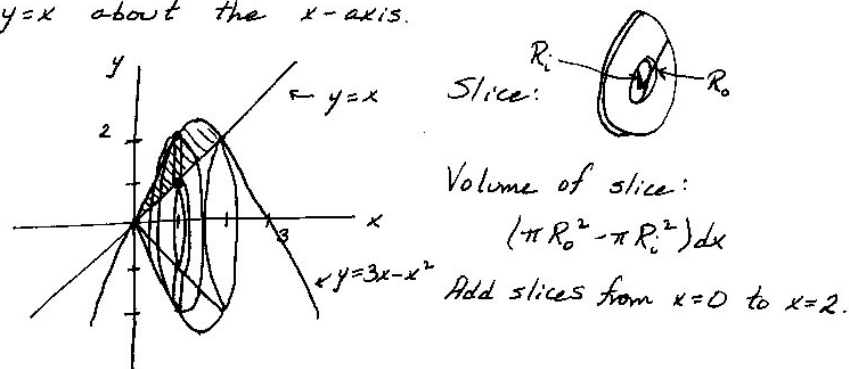 y=x about the x-axis.
y
← y=x
2
x
3
←y=3x-x²
Slice:
Rᵢ
Rₒ
Volume of slice:
(πRₒ²-πRᵢ²)dx
Add slices from x=0 to x=2.